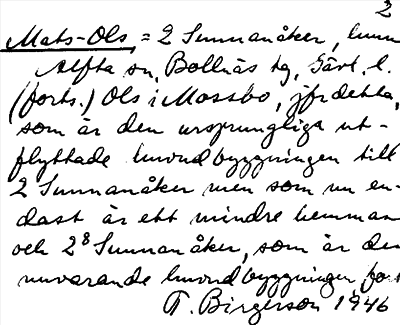 2
Mats-Ols = 2 Sunnanåker, hmn
Alfta sn, Bollnäs tg, Gävl. l.
(forts.) Ols i Mossbo, jfr detta,
som är den ursprungliga ut-
flyttade huvudbyggningen till
2 Sunnanåker men som nu en-
dast är ett mindre hemman
och 2⁸ Sunnanåker, som är den
nuvarande huvudbyggningen, for
T. Birgerson 1946